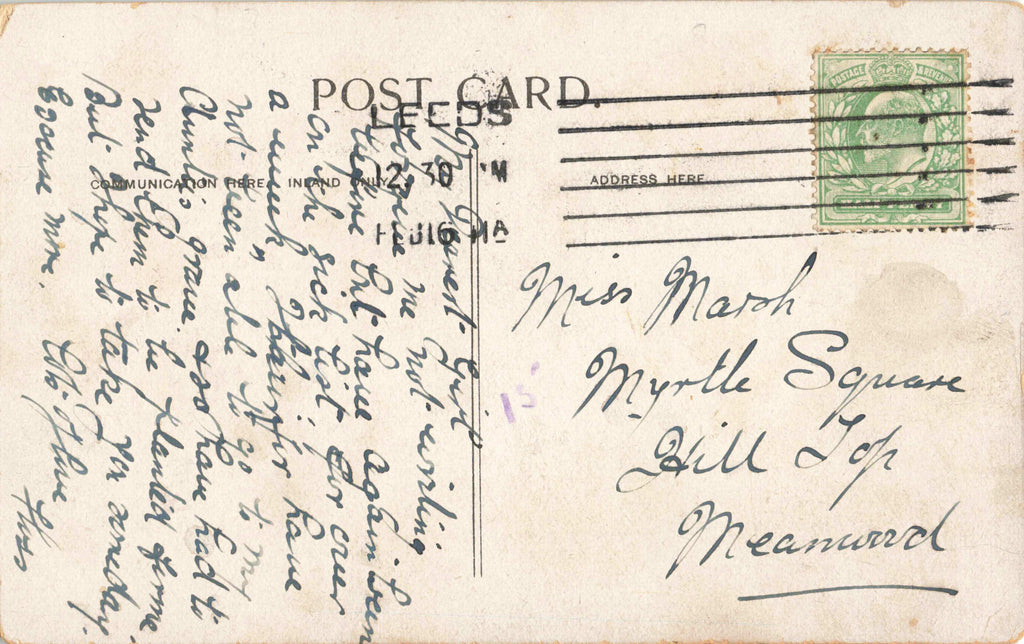 POST CARD.
COMMUNICATION HERE INLAND ONLY
ADDRESS HERE
LEEDS
2.30 PM
POSTAGE & REVENUE
Miss Marsh
Myrtle Square
Hill Top
Meanwood
My Dearest Girl
Forgive me not writing
before but have again been
on the sick list, for over
a week, & therefor have
not been able to go to my
Aunt's grave & so have had to
send them to be planted for me
But I hope to take you someday.
Excuse more.
Floss
15